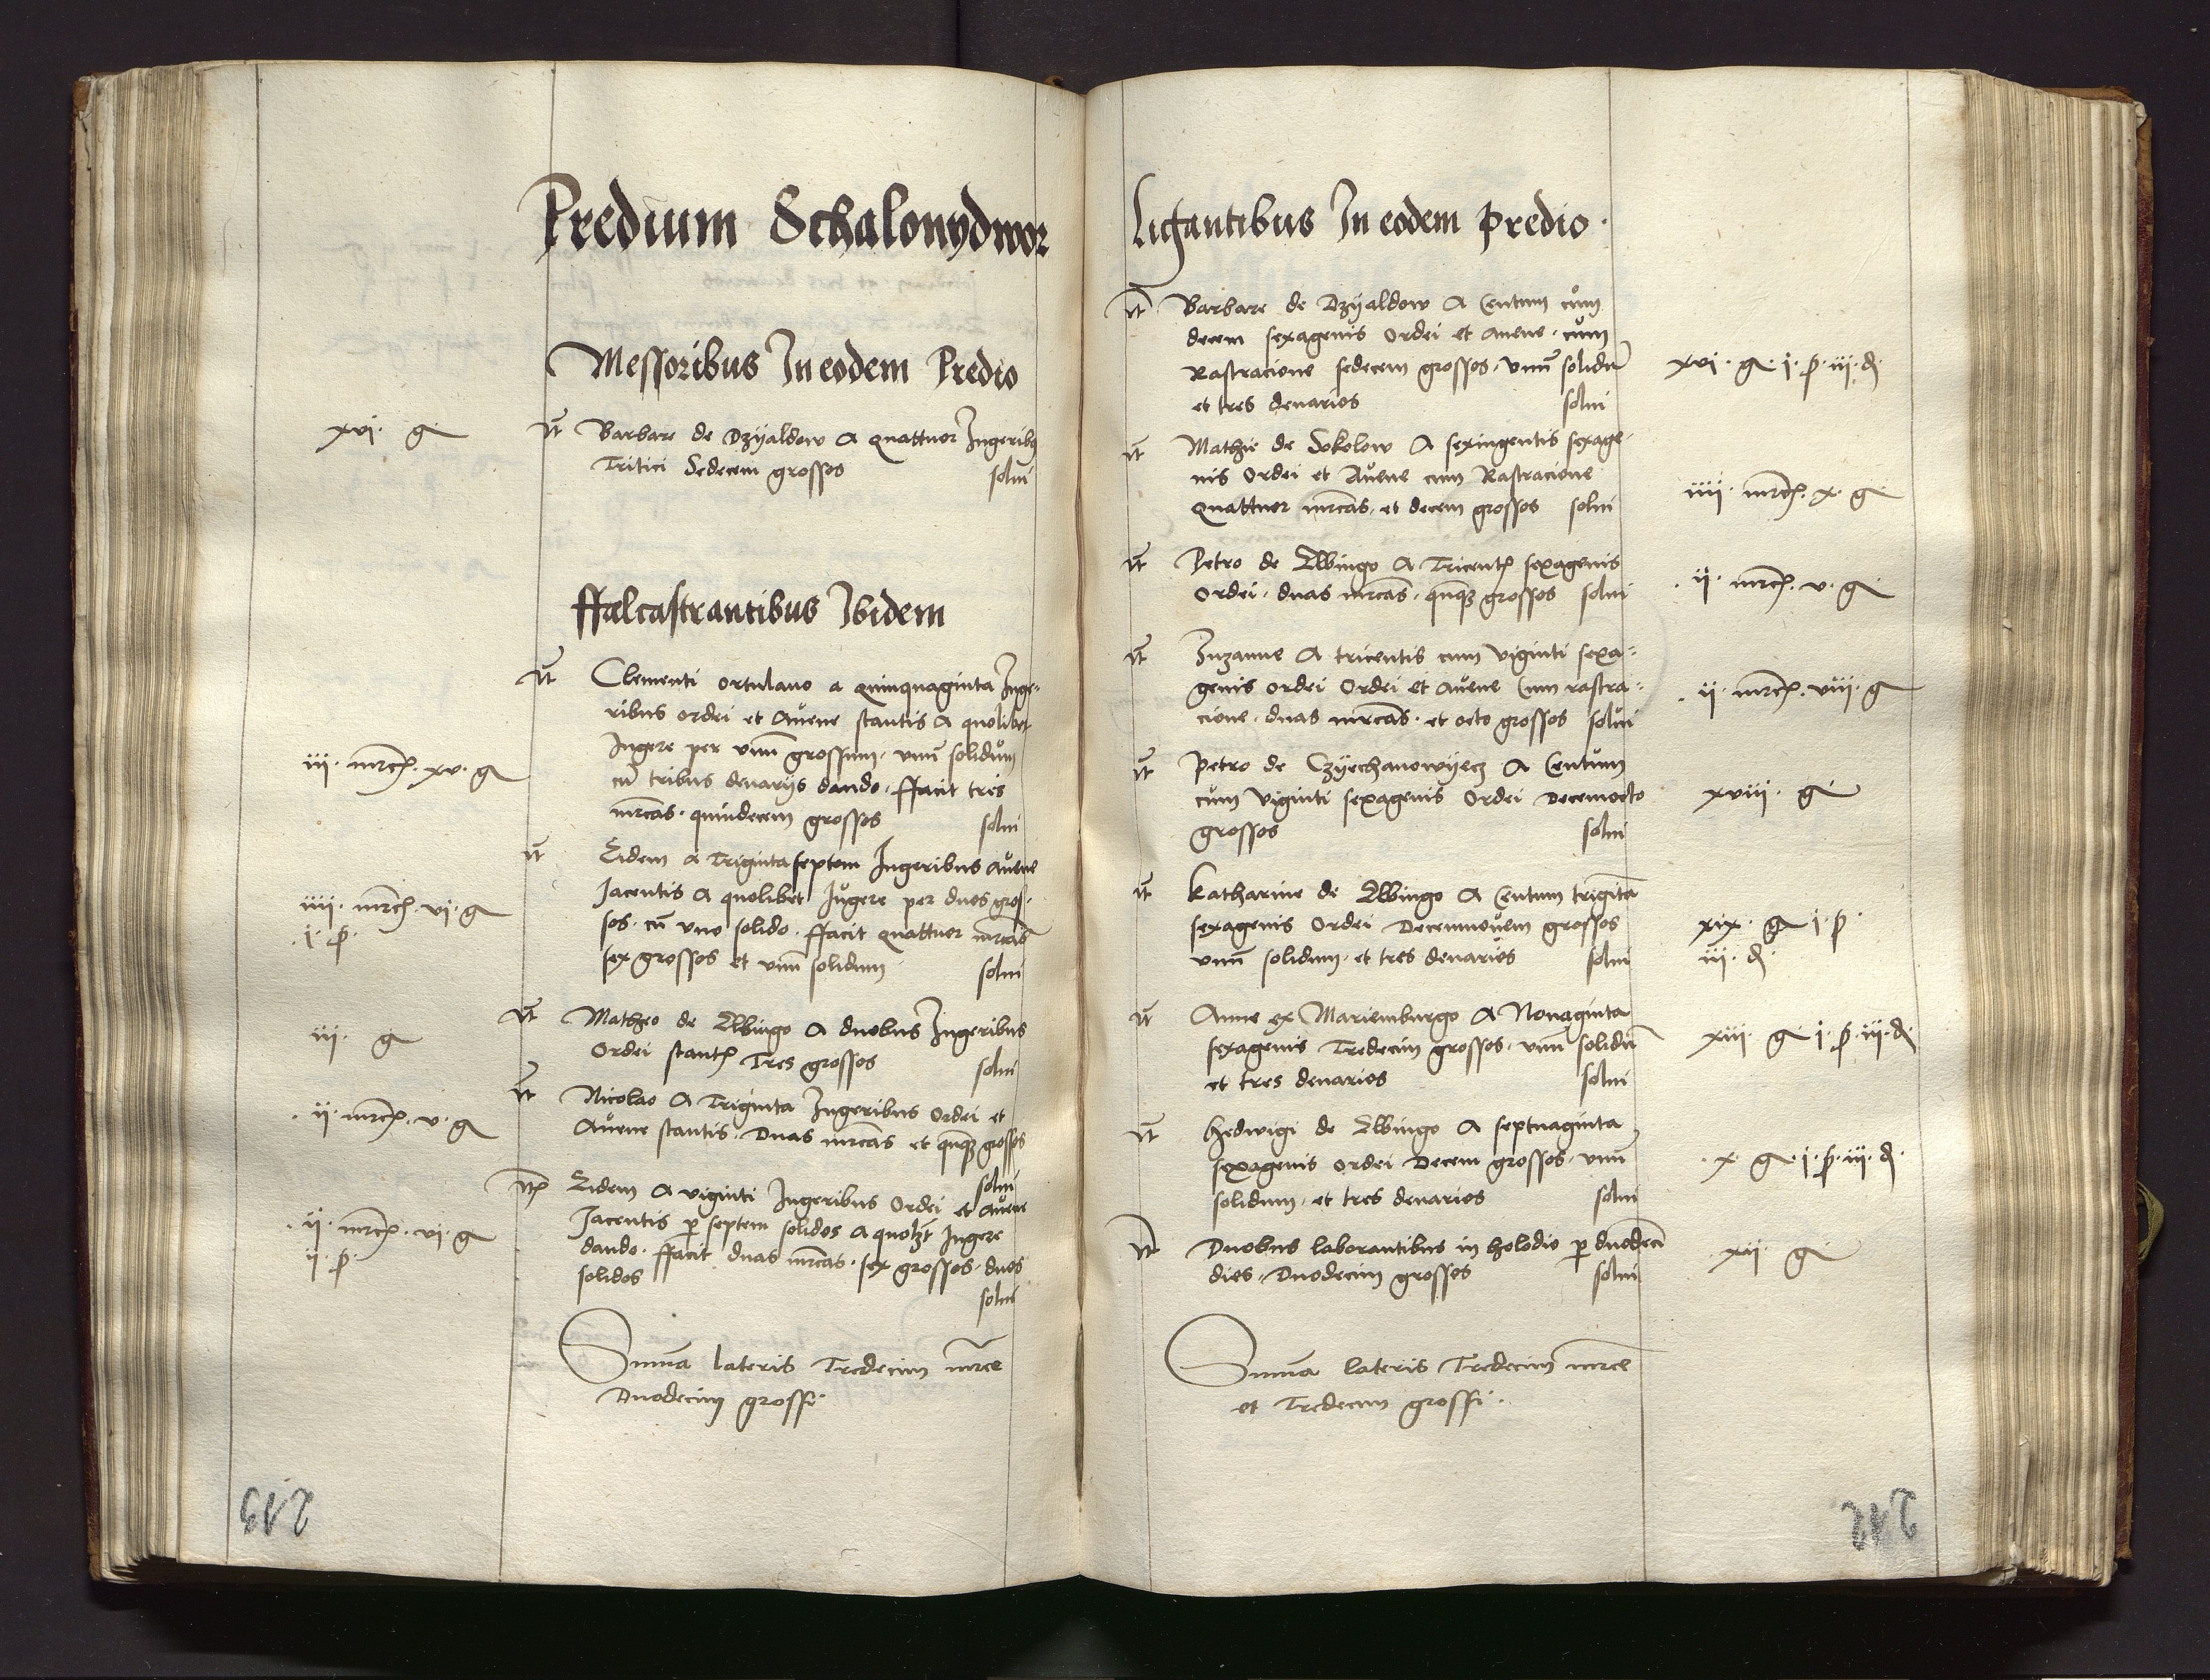 Predium Schalonydwor
Messoribus In eodem Predio
xvi· g
It Barbare de Dzyaldow A quattuor Iugeribus
Tritici Sedecim grossos solui
ffalcastrantibus Ibidem
It Clementi ortulano a quinquaginta Iuge-
ribus ordei et Auene stantis A quolibet
Iugere per vnum grossum· vnum solidum
iii· mrc· xv· g
cum tribus denarijs dando· ffacit tres
mrcas· quindecem grossos solui
It Eidem a Triginta septem Iugeribus Auene
Iacentis A quolibet Iugere per duos gros-
iiii· mrc· vi· g
sos· cum vno solido· ffacit quattuor mrcas
·i· ß·
sex grossos et vnum solidum solui
It Matheo de Elbingo A duobus Iugeribus
iii· g
Ordei stant Tres grossos solui
It Nicolao A Triginta Iugeribus Ordei et
·ii· mrc· v· g
Auene stantis· Duas mrcas et quinque grossos
solui
It Eidem A viginti Iugeribus Ordei et Auene
Iacentis per septem solidos A quolibet Iugere
·ii· mrc· vi· g
dando· ffacit duas mrcas· sex grossos· duos
ii· ß·
solidos
solui
Summa lateris Tredecim mrce
Duodecim grossi·
213
Ligantibus In eodem predio·
It Barbare de Dzyaldow A Centum cum
decem sexagenis Ordei et Auene· cum
Rastracione sedecem grossos· vnum solidum
xvi· g· i· ß· iii· d·
et tres denarios solui
It Mathie de Sokolow A sexingentis sexage-
nis Ordei et Auene cum Rastracione
iiii· mrc· x· g
Quattuor mrcas· et decem grossos solui
It Petro de Elbingo A Tricent sexagenis
·ii· mrc· v· g
Ordei· duas mrcas· quinque grossos solui
It Zuzanne A tricentis cum viginti sexa-
genis ordei Ordei et Auene Cum rastra-
·ii· mrc· viii· g
cione· duas mrcas· et octo grossos solui
It Petro de Czyechanowyecz A Centum
cum viginti sexagenis Ordei Decemocto
xviii· g
grossos solui
It Katharine de Elbingo A Centum triginta
sexagenis Ordei Decemnouem grossos
xix· g i· ß·
vnum solidum· et tres denarios solui
iii· d·
It Anne ex Mariemburgo A Nonaginta
sexagenis Tredecim grossos· vnum solidum
xiii· g· i· ß· iii· d·
et tres denarios solui
It Hedwigi de Elbingo A septuaginta
sexagenis ordei Decem grossos· vnum
·x· g· i· ß· iii· d·
solidum· et tres denarios solui
It Duobus laborantibus in holodio per duodecim
·xii· g
dies· Duodecim grossos solui
Summa lateris Tredecim mrce
et Tredecim grossi·